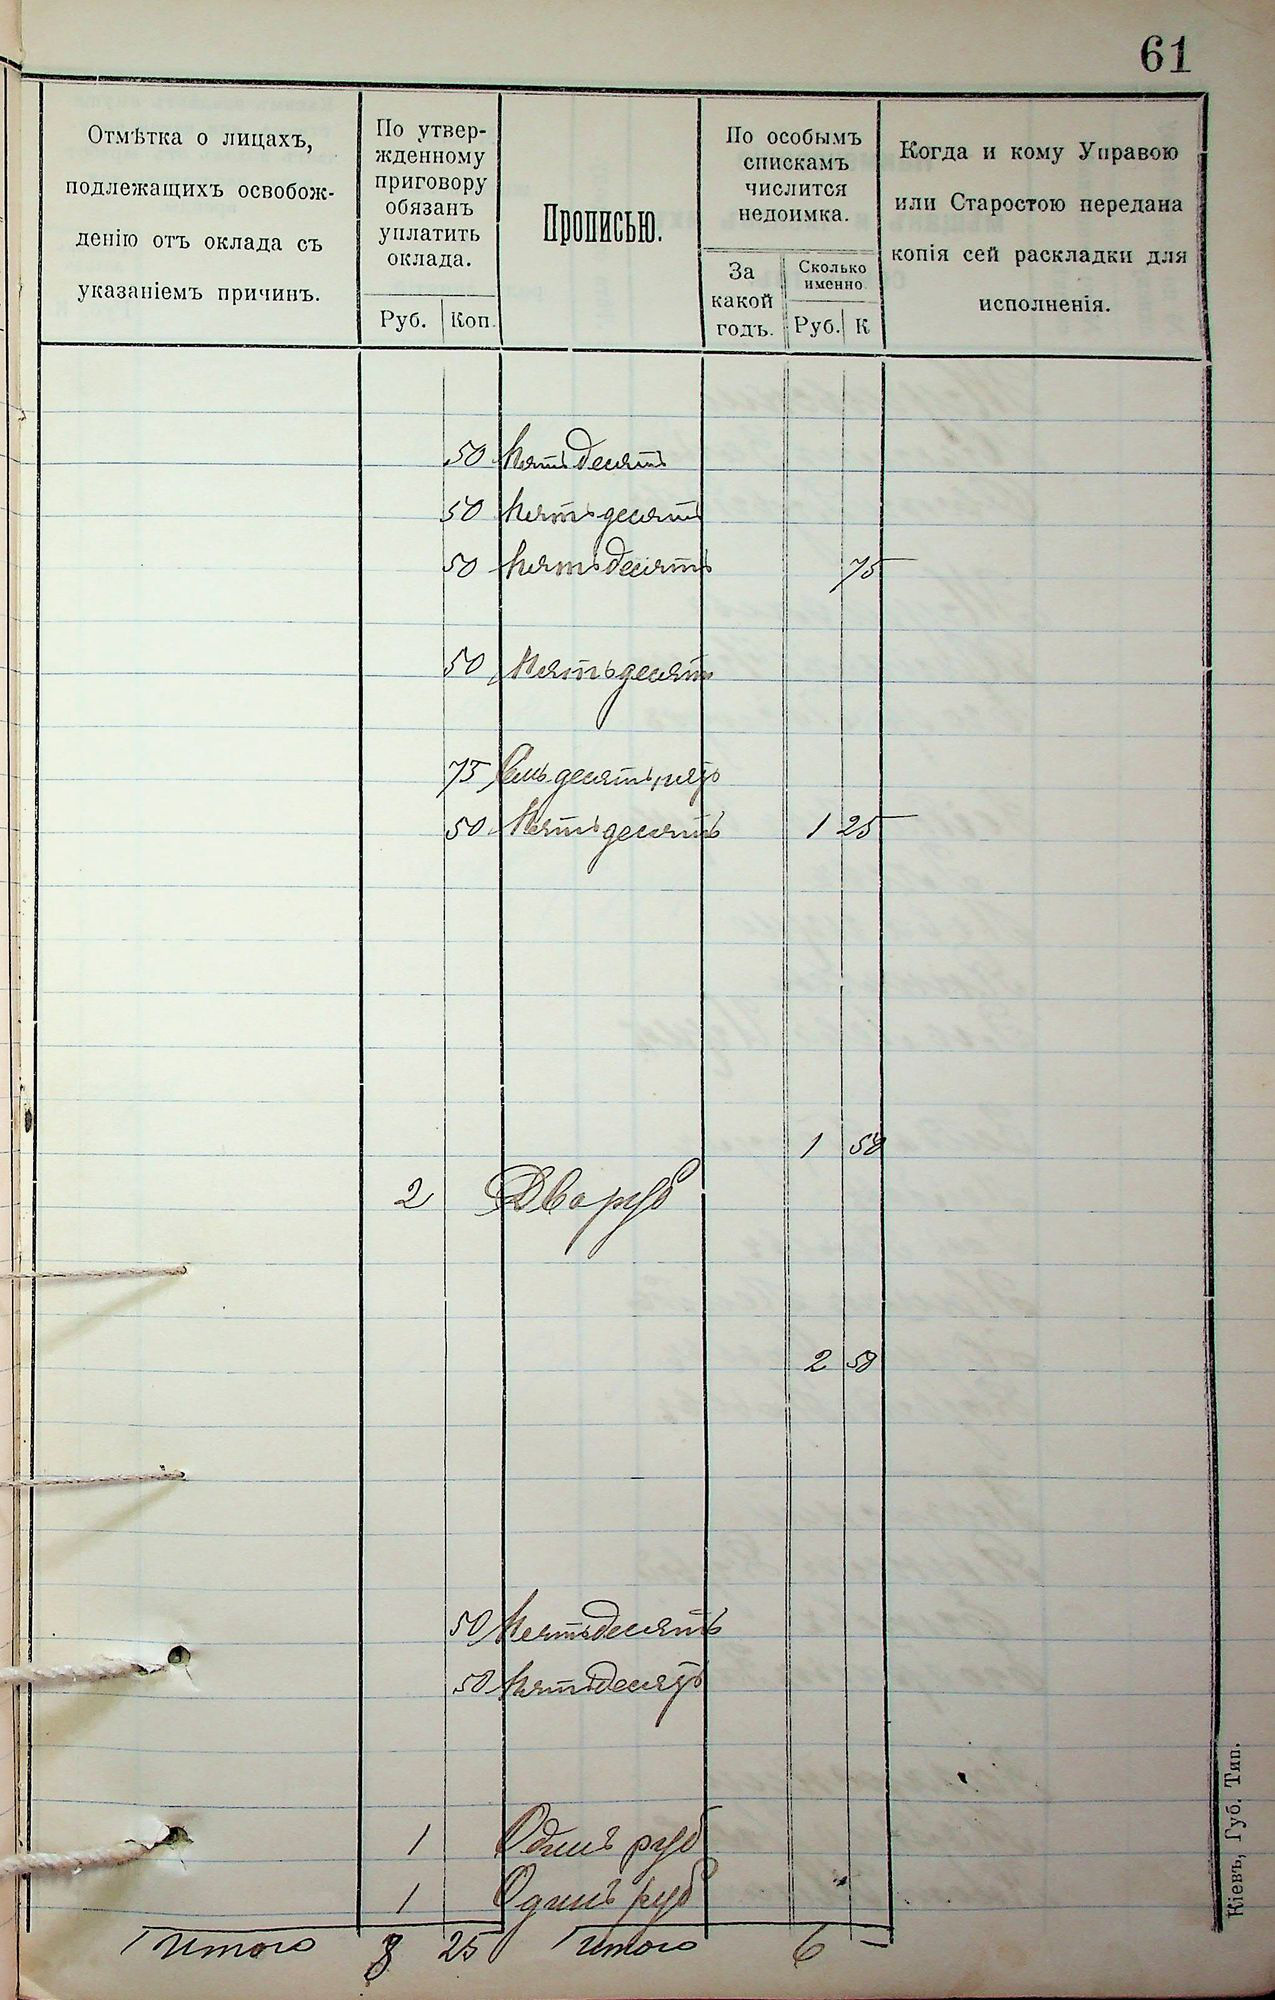 61
Отмѣтка о лицахъ,
подлежащихъ освобож-
денію отъ оклада съ
указаніемъ причинъ.
По утвер-
жденному
приговору
обязанъ
уплатить
оклада.
Руб. Коп.
Прописью.
По особымъ
спискамъ
числится
недоимка.
За
какой
годъ.
Сколько
именно.
Руб. К
Когда и кому Управою
или Старостою передана
копія сей раскладки для
исполненія.
50 Пятьдесятъ
50 Пятьдесятъ
50 Пятьдесятъ 75
50 Пятьдесятъ
75 Семьдесятъ пять
50 Пятьдесятъ 1 25
1 50
2 Два руб
2 50
50 Пятьдесятъ
50 Пятьдесятъ
1 Одинъ руб
1 Одинъ руб
Итого 8 25 Итого 6 —
Кіевъ, Губ. Тип.